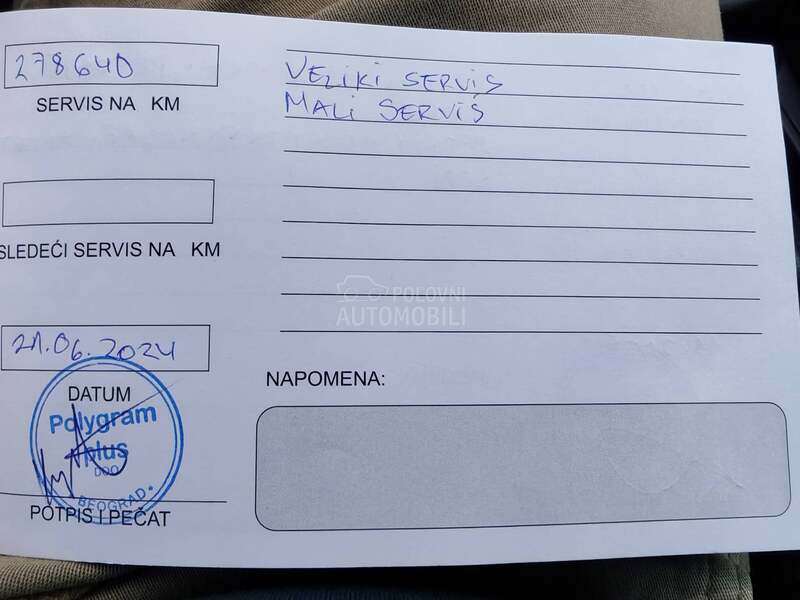 278640
SERVIS NA KM
VELIKI SERVIS
MALI SERVIS
SLEDEĆI SERVIS NA KM
POLOVNI
AUTOMOBILI
21.06.2024
DATUM
Polygram
plus
DOO
BEOGRAD
POTPIS I PEČAT
NAPOMENA: